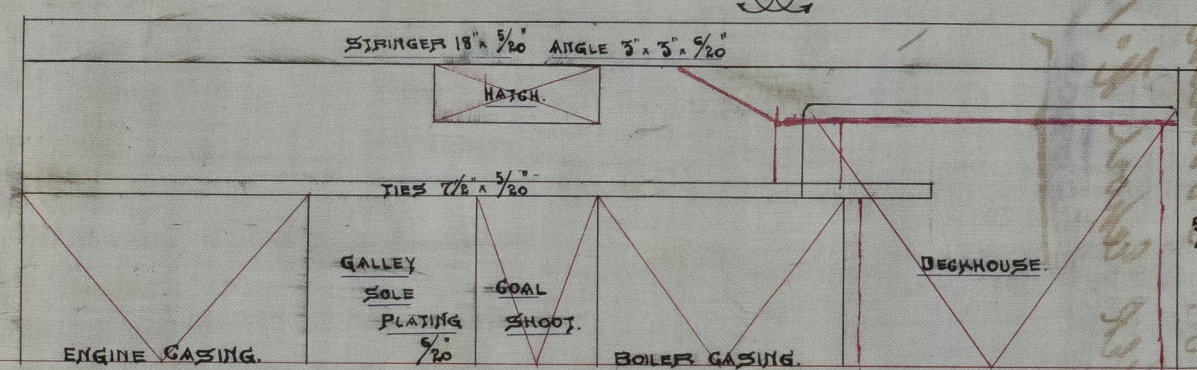 STRINGER 18" x 5/20" ANGLE 3" x 3" x 6/20"
HATCH.
TIES 7 1/2" x 5/20"
GALLEY
SOLE
PLATING
6/20"
COAL
SHOOT.
DECKHOUSE.
ENGINE CASING.
BOILER CASING.